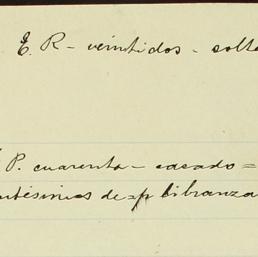 E. R - veintidos - solte
P. cuarenta - casado =
ntésimos de =p libranza